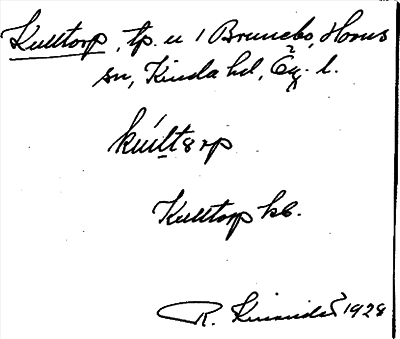 Kulltorp, tp. u 1 Brunebo, Horns
sn, Kinda hd, Ög. l.
kúlltɔrp
Kulltorp kb.
R. 1928